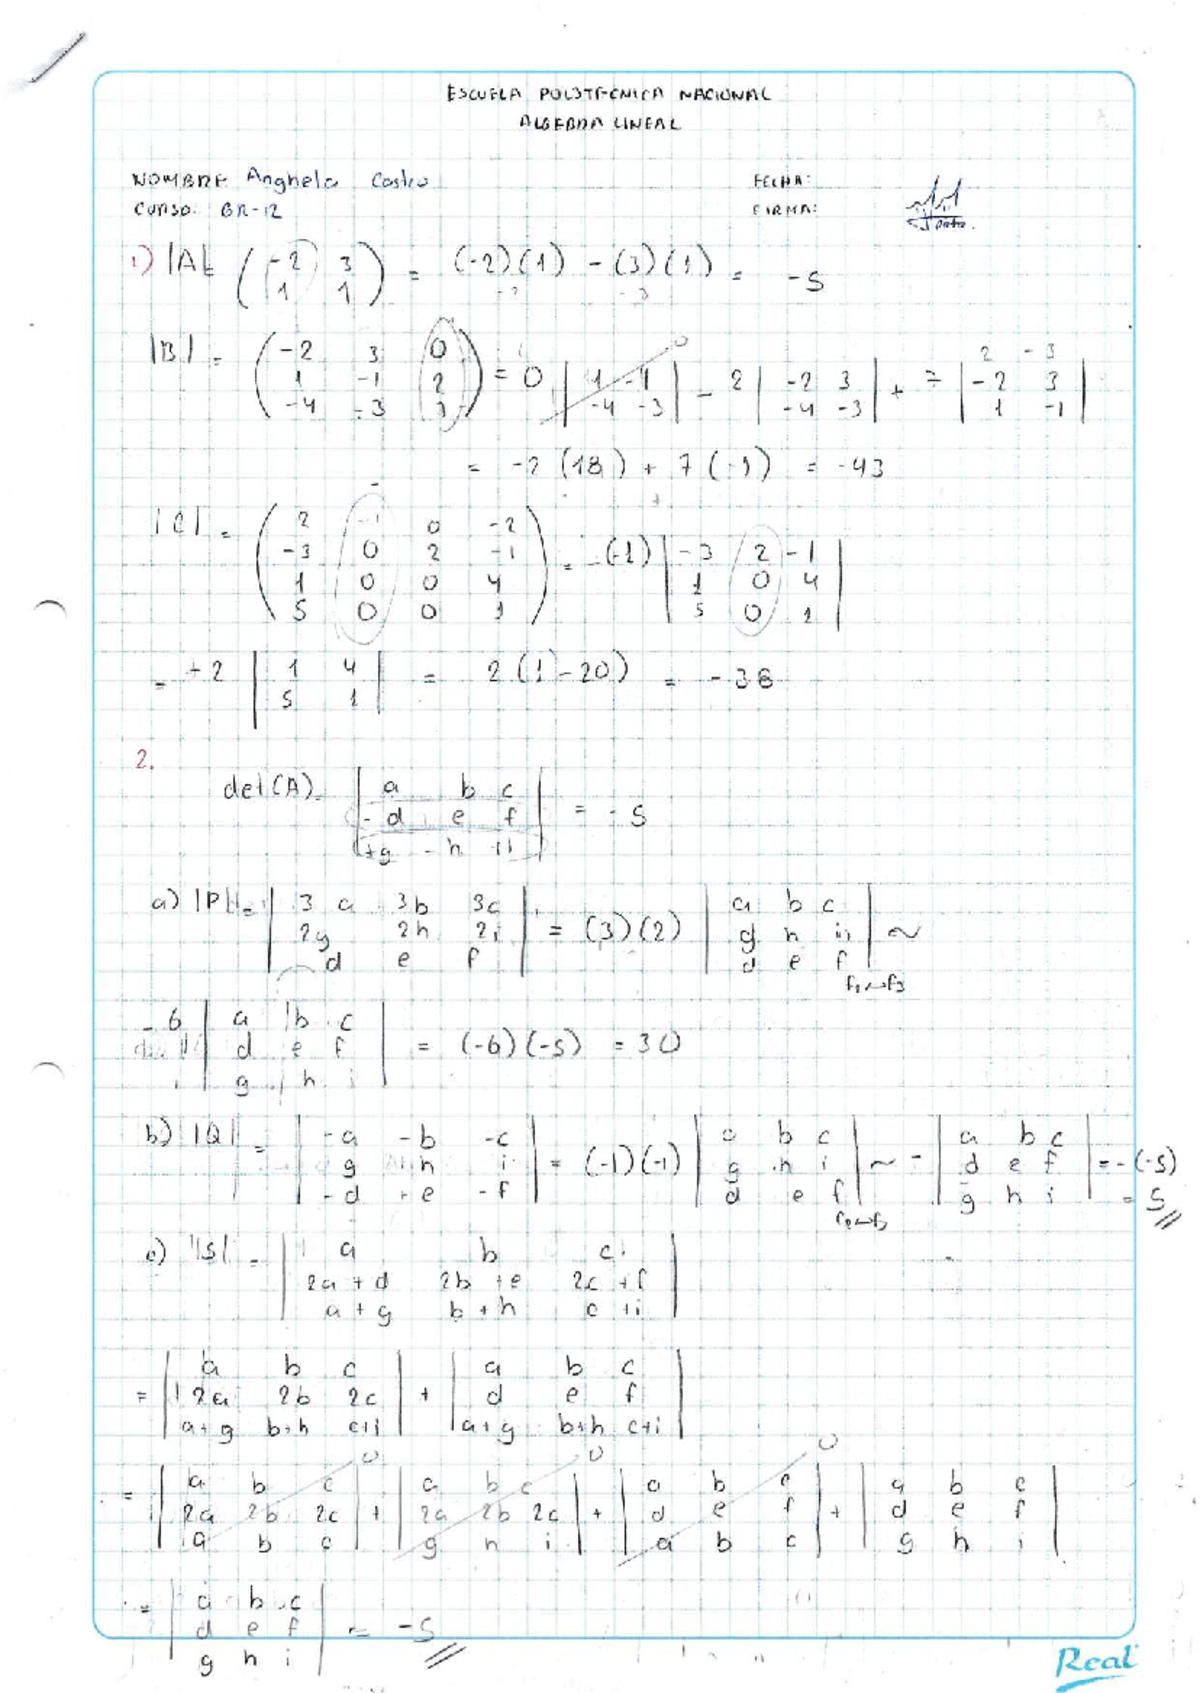 ESCUELA POLITECNICA NACIONAL
ALGEBRA LINEAL
NOMBRE Anghelo Castro
FECHA:
CURSO: GR-12
FIRMA:
1) |A| = ( -2 3 ; 1 1 ) = (-2)(1) - (3)(1) = -5
|B| = ( -2 3 0 ; 1 -1 2 ; -4 -3 7 ) = 0 | 1 -1 ; -4 -3 | - 2 | -2 3 ; -4 -3 | + 7 | -2 3 ; 1 -1 |
= -2 (18) + 7 (-1) = -43
|C| = ( 2 -1 0 -2 ; -3 0 2 -1 ; 1 0 0 4 ; 5 0 0 1 ) = -(-1) | -3 2 -1 ; 1 0 4 ; 5 0 1 |
= +2 | 1 4 ; 5 1 | = 2 (1 - 20) = -38
2.
det(A) = | a b c ; - d e f ; +g - h +i | = -5
a) |P| = | 3a 3b 3c ; 2g 2h 2i ; d e f | = (3)(2) | a b c ; g h i ; d e f | ~
-6 | a b c ; d e f ; g h i | = (-6)(-5) = 30
b) |Q| = | -a -b -c ; g h i ; -d -e -f | = (-1)(-1) | a b c ; g h i ; d e f | ~ - | a b c ; d e f ; g h i | = -(-5)
= 5
c) |S| = | a b c ; 2a+d 2b+e 2c+f ; a+g b+h c+i |
= | a b c ; 2a 2b 2c ; a+g b+h c+i | + | a b c ; d e f ; a+g b+h c+i |
= | a b c ; 2a 2b 2c ; a b c | 0 + | a b c ; 2a 2b 2c ; g h i | 0 + | a b c ; d e f ; a b c | 0 + | a b c ; d e f ; g h i |
= | a b c ; d e f ; g h i | = -5
Real